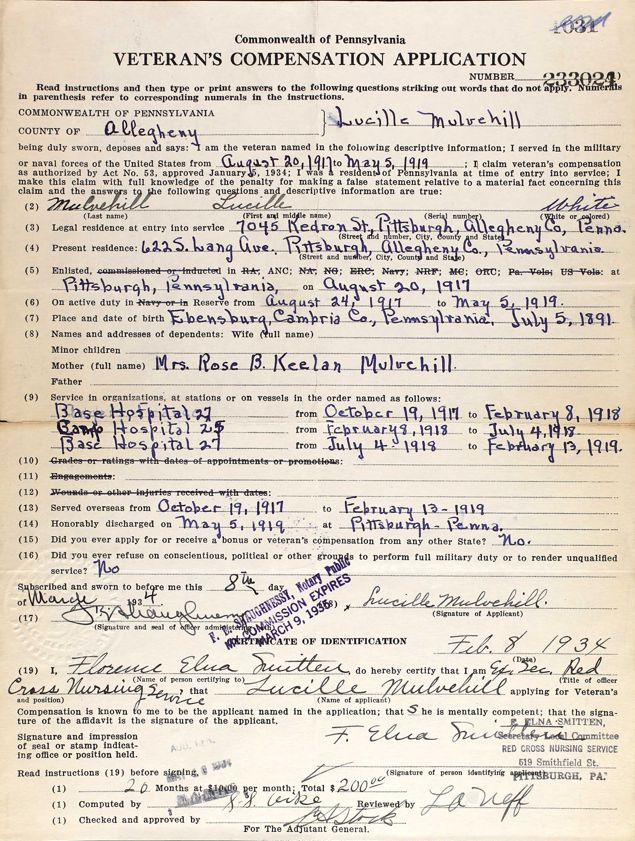 1031
Commonwealth of Pennsylvania
VETERAN'S COMPENSATION APPLICATION
NUMBER 233024 1)
Read instructions and then type or print answers to the following questions striking out words that do not apply. Numerals
in parenthesis refer to corresponding numerals in the instructions.
COMMONWEALTH OF PENNSYLVANIA
COUNTY OF Allegheny } Lucille Mulvehill
being duly sworn, deposes and says: I am the veteran named in the following descriptive information; I served in the military
or naval forces of the United States from August 20, 1917 to May 5, 1919; I claim veteran's compensation
as authorized by Act No. 53, approved January 5, 1934; I was a resident of Pennsylvania at time of entry into service; I
make this claim with full knowledge of the penalty for making a false statement relative to a material fact concerning this
claim and the answers to the following questions and descriptive information are true:
(2) Mulvehill Lucille White
(Last name) (First and middle name) (Serial number) (White or colored)
(3) Legal residence at entry into service 7045 Kedron St, Pittsburgh, Allegheny Co, Penna.
(Street and number, City, County and State)
(4) Present residence: 622 S. Lang Ave. Pittsburgh, Allegheny Co., Pennsylvania
(Street and number, City, County and State)
(5) Enlisted, commissioned or inducted in RA, ANC; NA, NG; ERC; Navy; NRF; MC; ORC; Pa. Vols; US Vols: at
Pittsburgh, Pennsylvania, on August 20, 1917
(6) On active duty in Navy or in Reserve from August 24, 1917 to May 5, 1919.
(7) Place and date of birth Ebensburg, Cambria Co., Pennsylvania, July 5, 1891.
(8) Names and addresses of dependents: Wife (full name)
Minor children
Mother (full name) Mrs. Rose B. Keelan Mulvehill.
Father
(9) Service in organizations, at stations or on vessels in the order named as follows:
Base Hospital 27 from October 19, 1917 to February 8, 1918
Camp Hospital 25 from February 8, 1918 to July 4, 1918
Base Hospital 27 from July 4 - 1918 to February 13, 1919.
(10) Grades or ratings with dates of appointments or promotions:
(11) Engagements:
(12) Wounds or other injuries received with dates:
(13) Served overseas from October 19, 1917 to February 13 - 1919
(14) Honorably discharged on May 5, 1919 at Pittsburgh - Penna.
(15) Did you ever apply for or receive a bonus or veteran's compensation from any other State? No.
(16) Did you ever refuse on conscientious, political or other grounds to perform full military duty or to render unqualified
service? No
Subscribed and sworn to before me this 8th day
of March 1934
(17) (18) Lucille Mulvehill.
(Signature and seal of officer administering oath) (Signature of Applicant)
F. B. SHAUGHNESSY, Notary Public
MY COMMISSION EXPIRES
MARCH 9, 1935
CERTIFICATE OF IDENTIFICATION Feb. 8 1934
(Date)
(19) I, Florence Elna Smitten, do hereby certify that I am Ex. Sec. Red
(Name of person certifying to) (Title of officer
Cross Nursing Service, that Lucille Mulvehill applying for Veteran's
and position) (Name of applicant)
Compensation is known to me to be the applicant named in the application; that She is mentally competent; that the signa-
ture of the affidavit is the signature of the applicant.
Signature and impression
of seal or stamp indicat-
ing office or position held.
F. Elna Smitten
F. ELNA SMITTEN,
Secretary Local Committee
RED CROSS NURSING SERVICE
519 Smithfield St.
PITTSBURGH, PA.
Read instructions (19) before signing. (Signature of person identifying applicant)
(1) 20 Months at $10.00 per month; Total $200.00
(1) Computed by Reviewed by L A Neff
(1) Checked and approved by
For The Adjutant General.